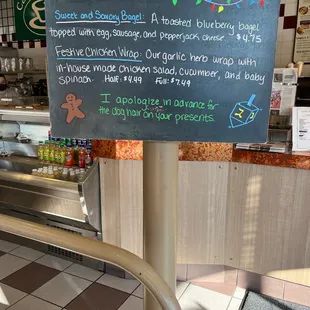 Sweet and Savory Bagel: A toasted blueberry bagel
topped with egg, sausage, and pepperjack cheese. $4.75
Festive Chicken Wrap: Our garlic herb wrap with
in-house made chicken salad, cucumber, and baby
spinach. Half: $4.49 Full: $7.49
I apologize in advance for
the dog hair on your presents.